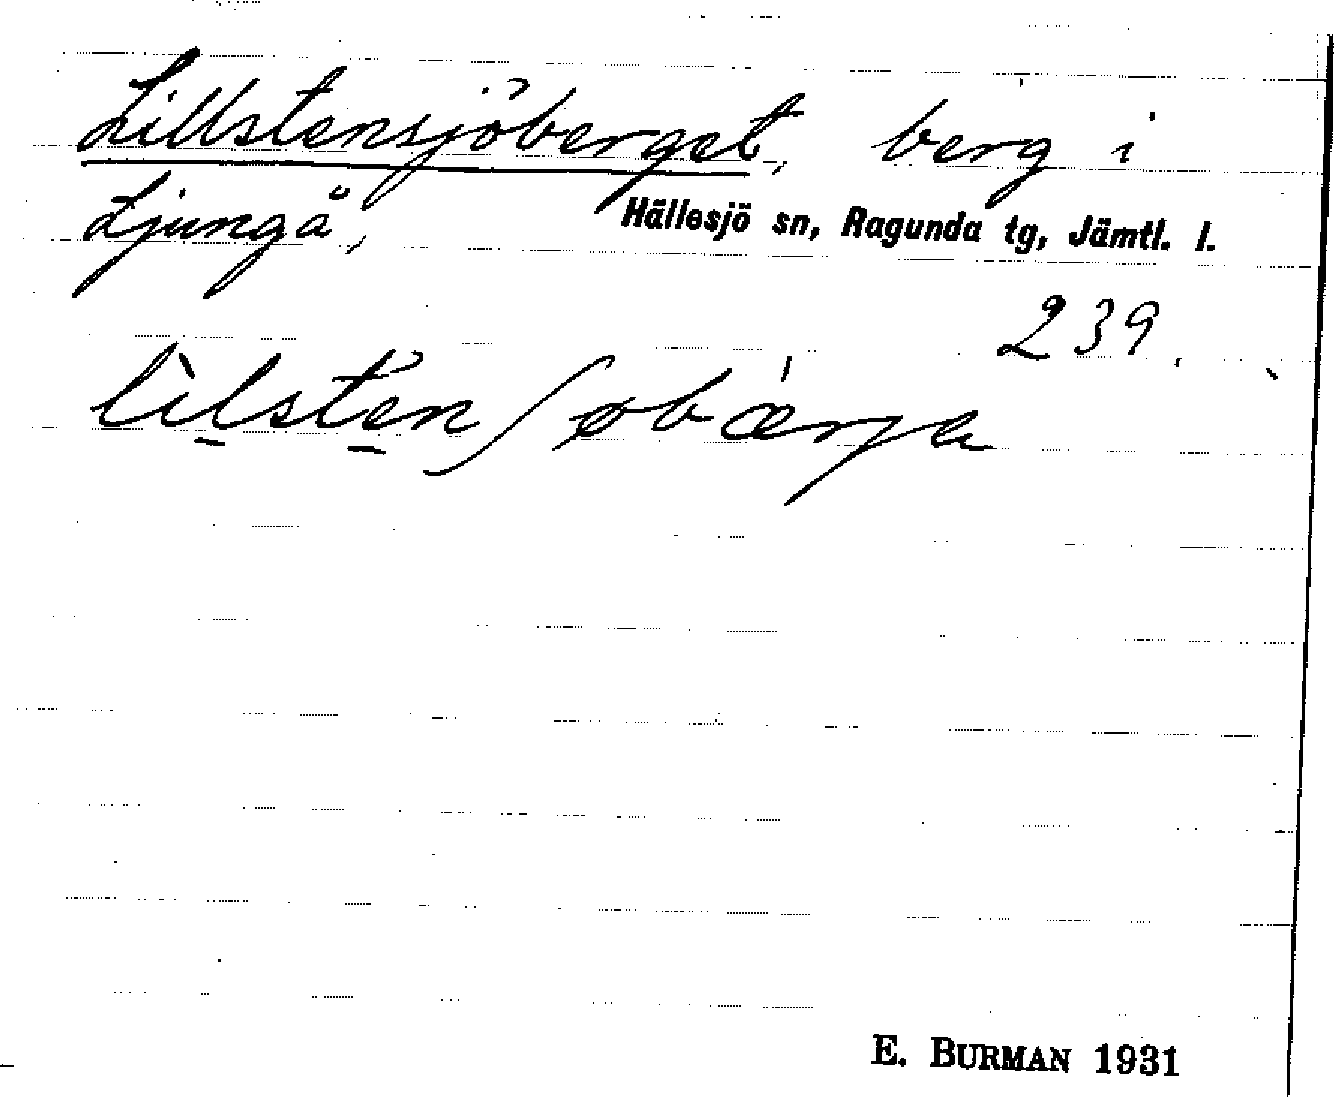 Lillstensjöberget, berg i
Ljungå, Hällesjö sn, Ragunda tg, Jämtl. l.
239.
E. BURMAN 1931